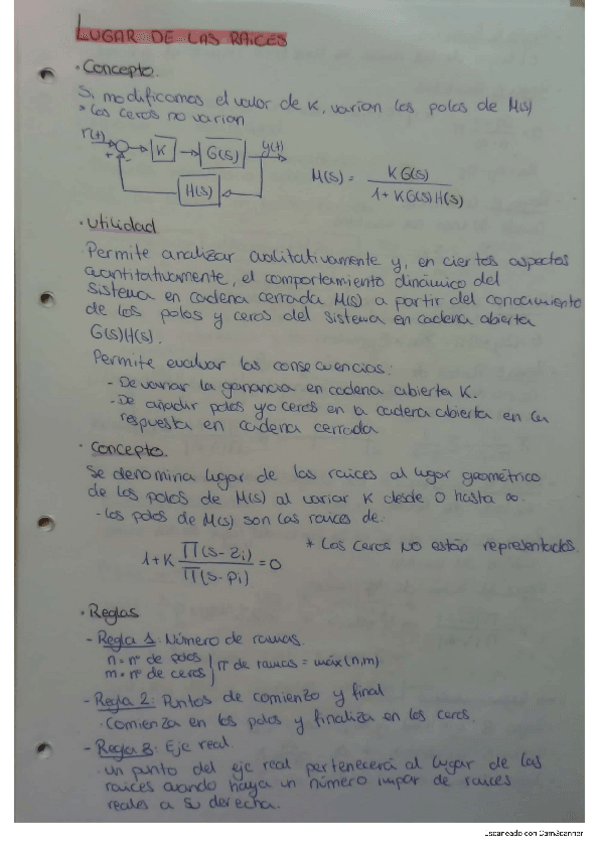 LUGAR DE LAS RAICES
· Concepto.
Si modificamos el valor de K, varían los polos de M(s)
* Los ceros no varían
r(t) + - K G(s) y(t)
H(s)
M(s) = KG(s) / 1 + KG(s)H(s)
· Utilidad
Permite analizar cualitativamente y, en ciertos aspectos
cuantitativamente, el comportamiento dinámico del
sistema en cadena cerrada M(s) a partir del conocimiento
de los polos y ceros del sistema en cadena abierta
G(s)H(s).
Permite evaluar las consecuencias:
- De variar la ganancia en cadena abierta K.
- De añadir polos y/o ceros en la cadena abierta en la
respuesta en cadena cerrada
· Concepto.
Se denomina lugar de las raíces al lugar geométrico
de los polos de M(s) al variar K desde 0 hasta ∞.
- Los polos de M(s) son las raíces de:
1 + K ∏(s - zi) / ∏(s - pi) = 0
* Los ceros NO están representados.
· Reglas
- Regla 1: Número de ramas.
n = nº de polos
m = nº de ceros | nº de ramas = máx(n,m)
- Regla 2: Puntos de comienzo y final
· Comienza en los polos y finaliza en los ceros.
- Regla 3: Eje real.
· Un punto del eje real pertenecerá al lugar de las
raíces cuando haya un número impar de raíces
reales a su derecha.
Escaneado con CamScanner